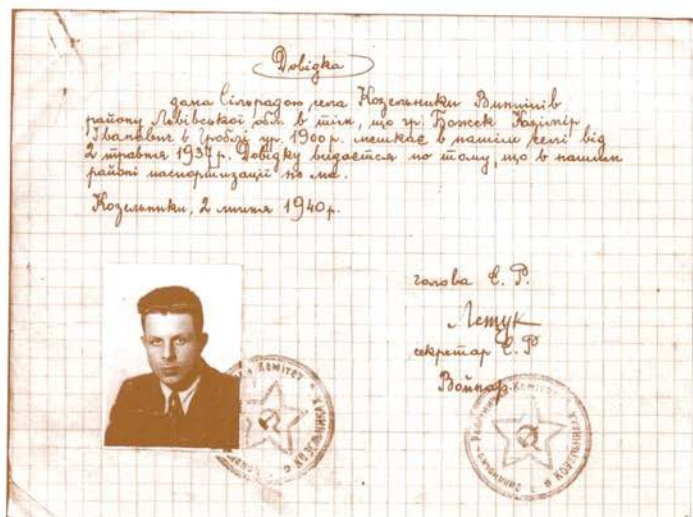 Довідка
дана Сільрадою, села Козельники Винників
району Львівської обл. в тім, що гр. Божек Казімір
Іванович в Гроблі ур. 1900 р. мешкає в нашім селі від
2 травня 1937 р. Довідку видається по тому, що в нашим
районі паспортизації не ма.
Козельники, 2 липня 1940 р.
голова С. Р.
Лещук
секретар С. Р
Войнар
Комітет
Комітет